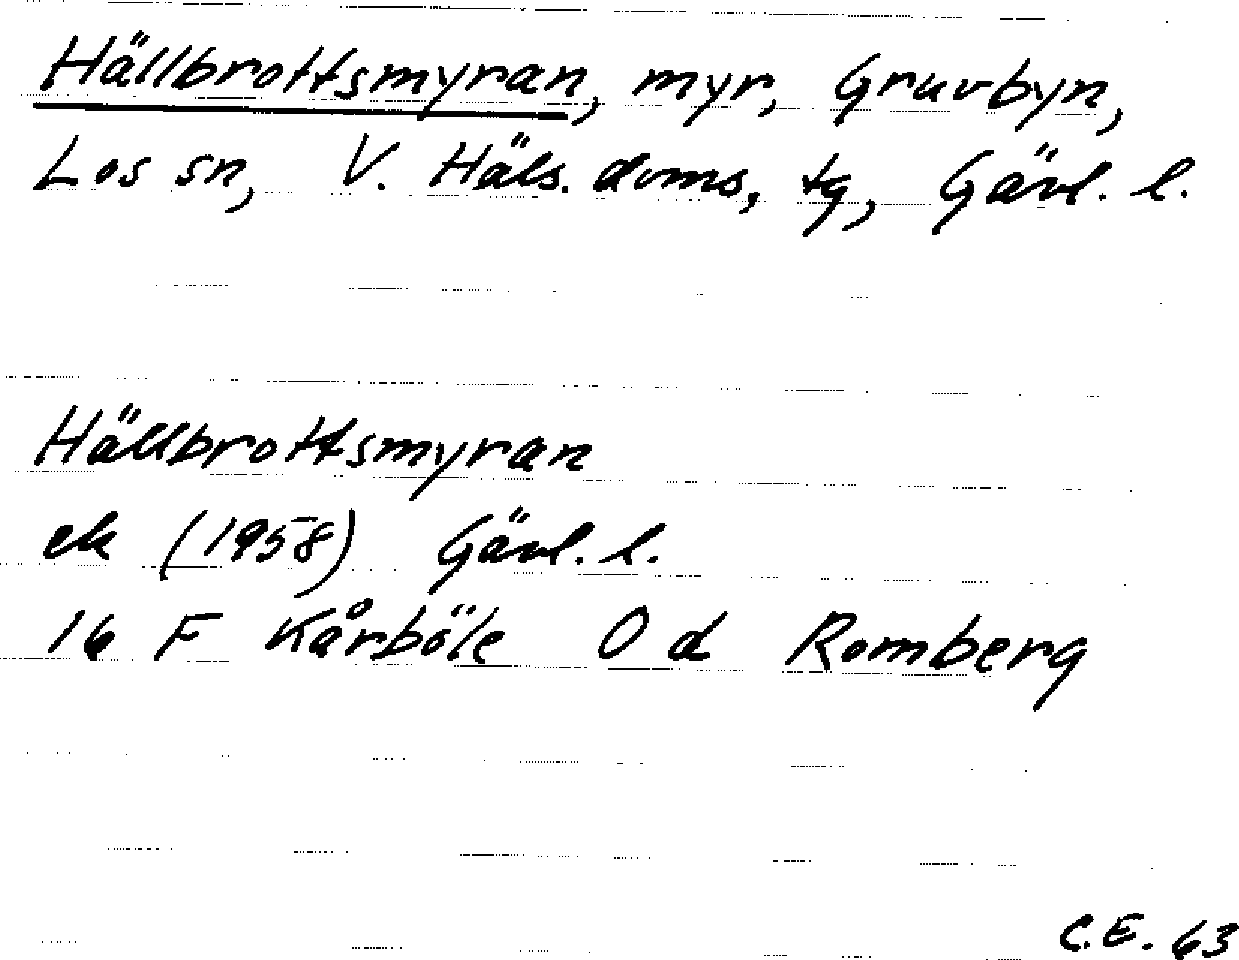 Hällbrottsmyran, myr, Gruvbyn,
Los sn, V. Häls. doms. tg, Gävl. l.
Hällbrottsmyran
ek (1958) Gävl. l.
16 F Kårböle O d Romberg
C.E. 63